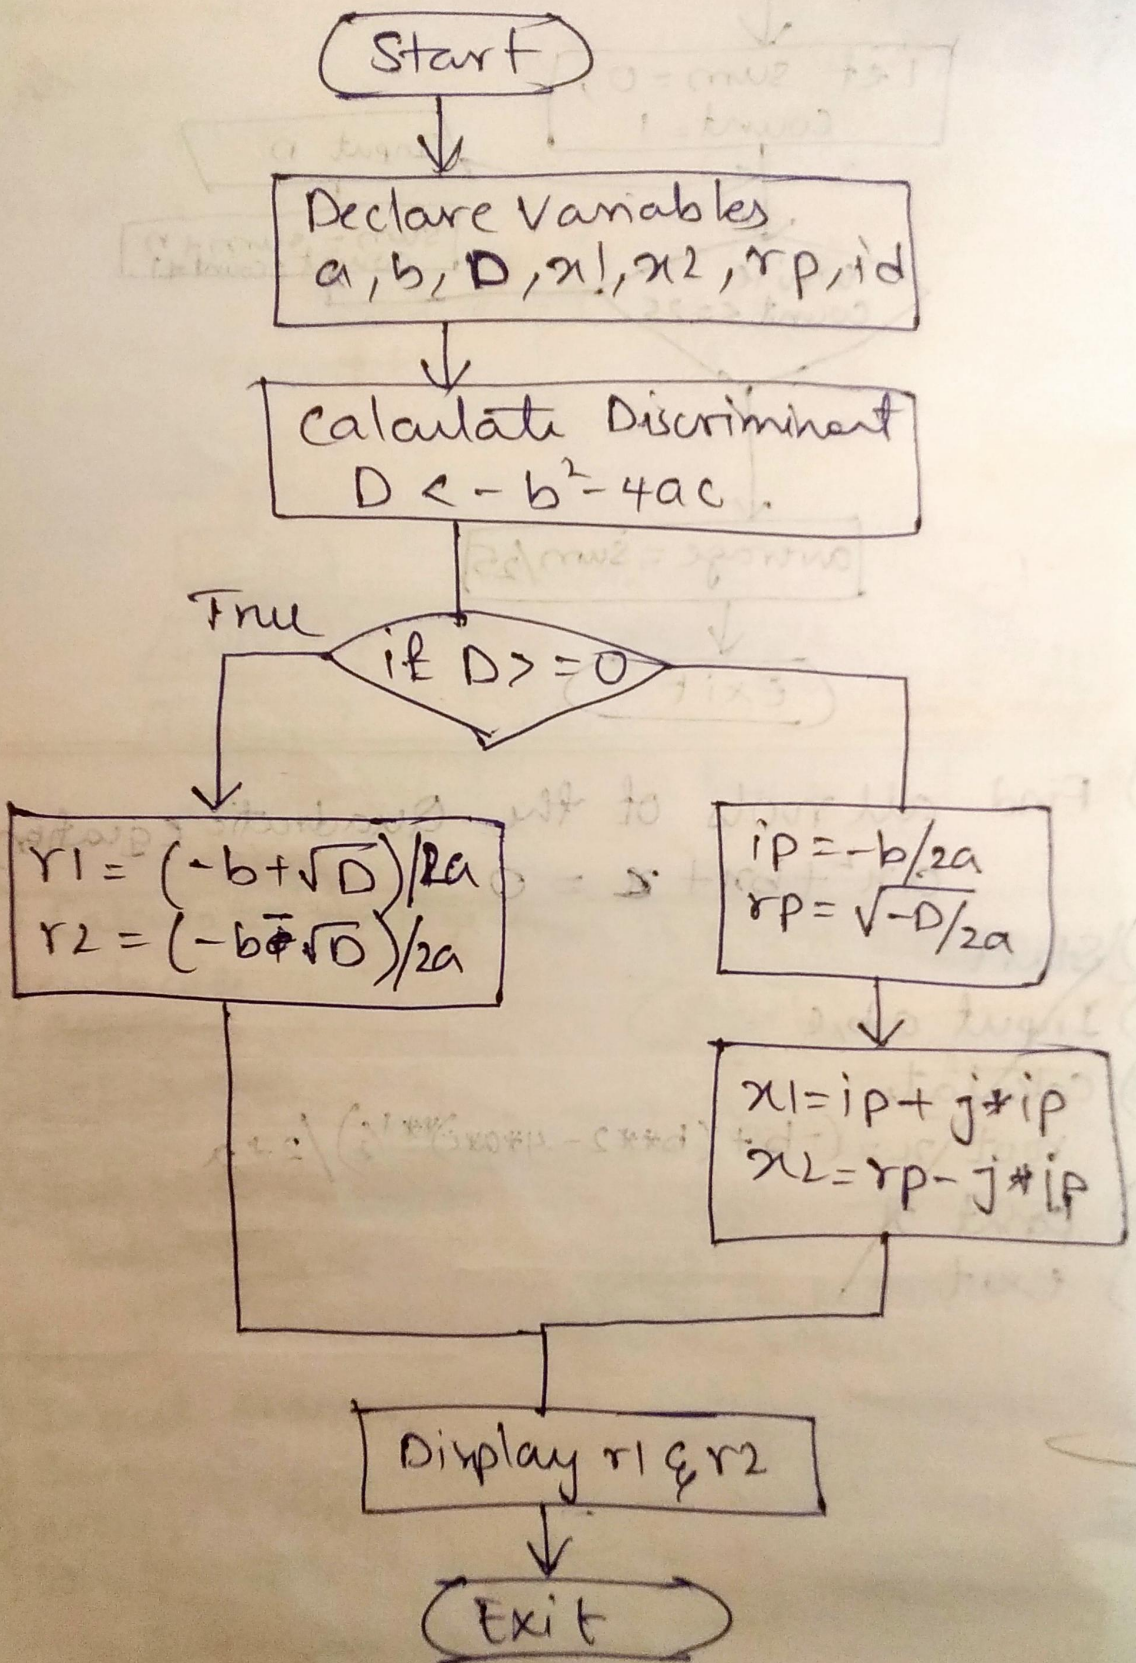 Start
Declare Variables
a, b, D, x1, x2, rp, id
Calculate Discriminent
D <- b²-4ac
True
if D>=0
r1= (-b+√D)/2a
r2=(-b-√D)/2a
ip=-b/2a
rp=√-D/2a
x1=ip+j*ip
x2=rp-j*ip
Display r1 & r2
Exit